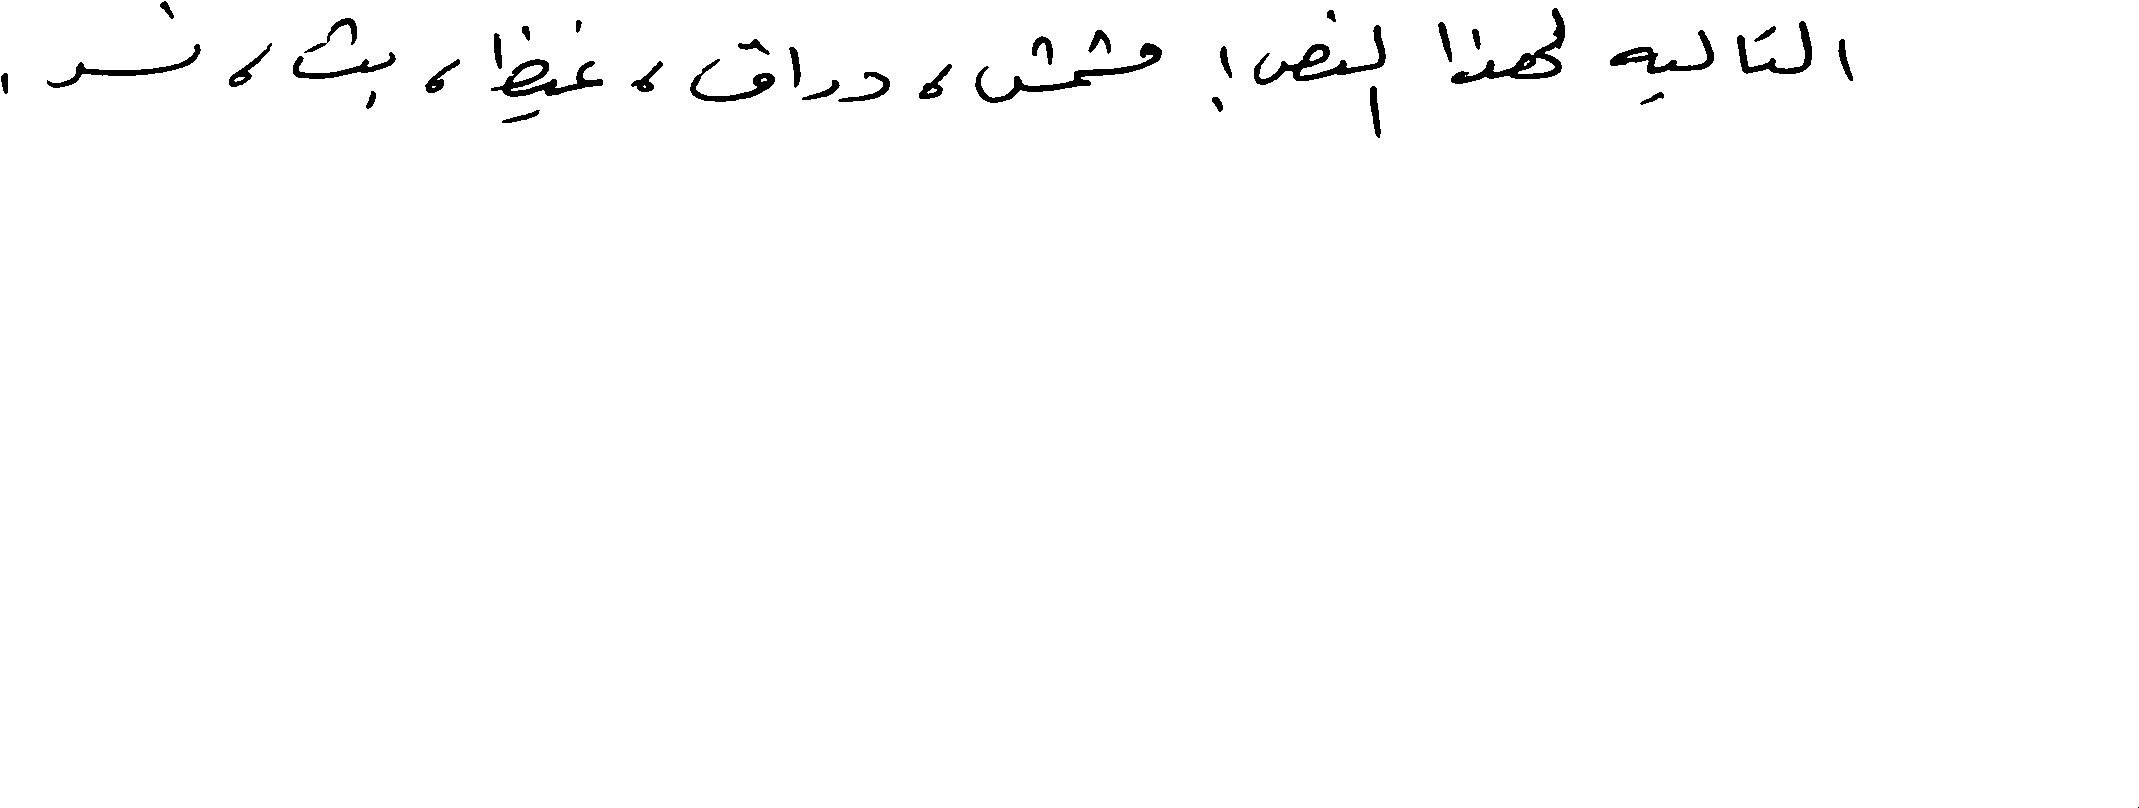 التاليه لهذا النص! مشمش، دراق، غيظ، بث، نسر.